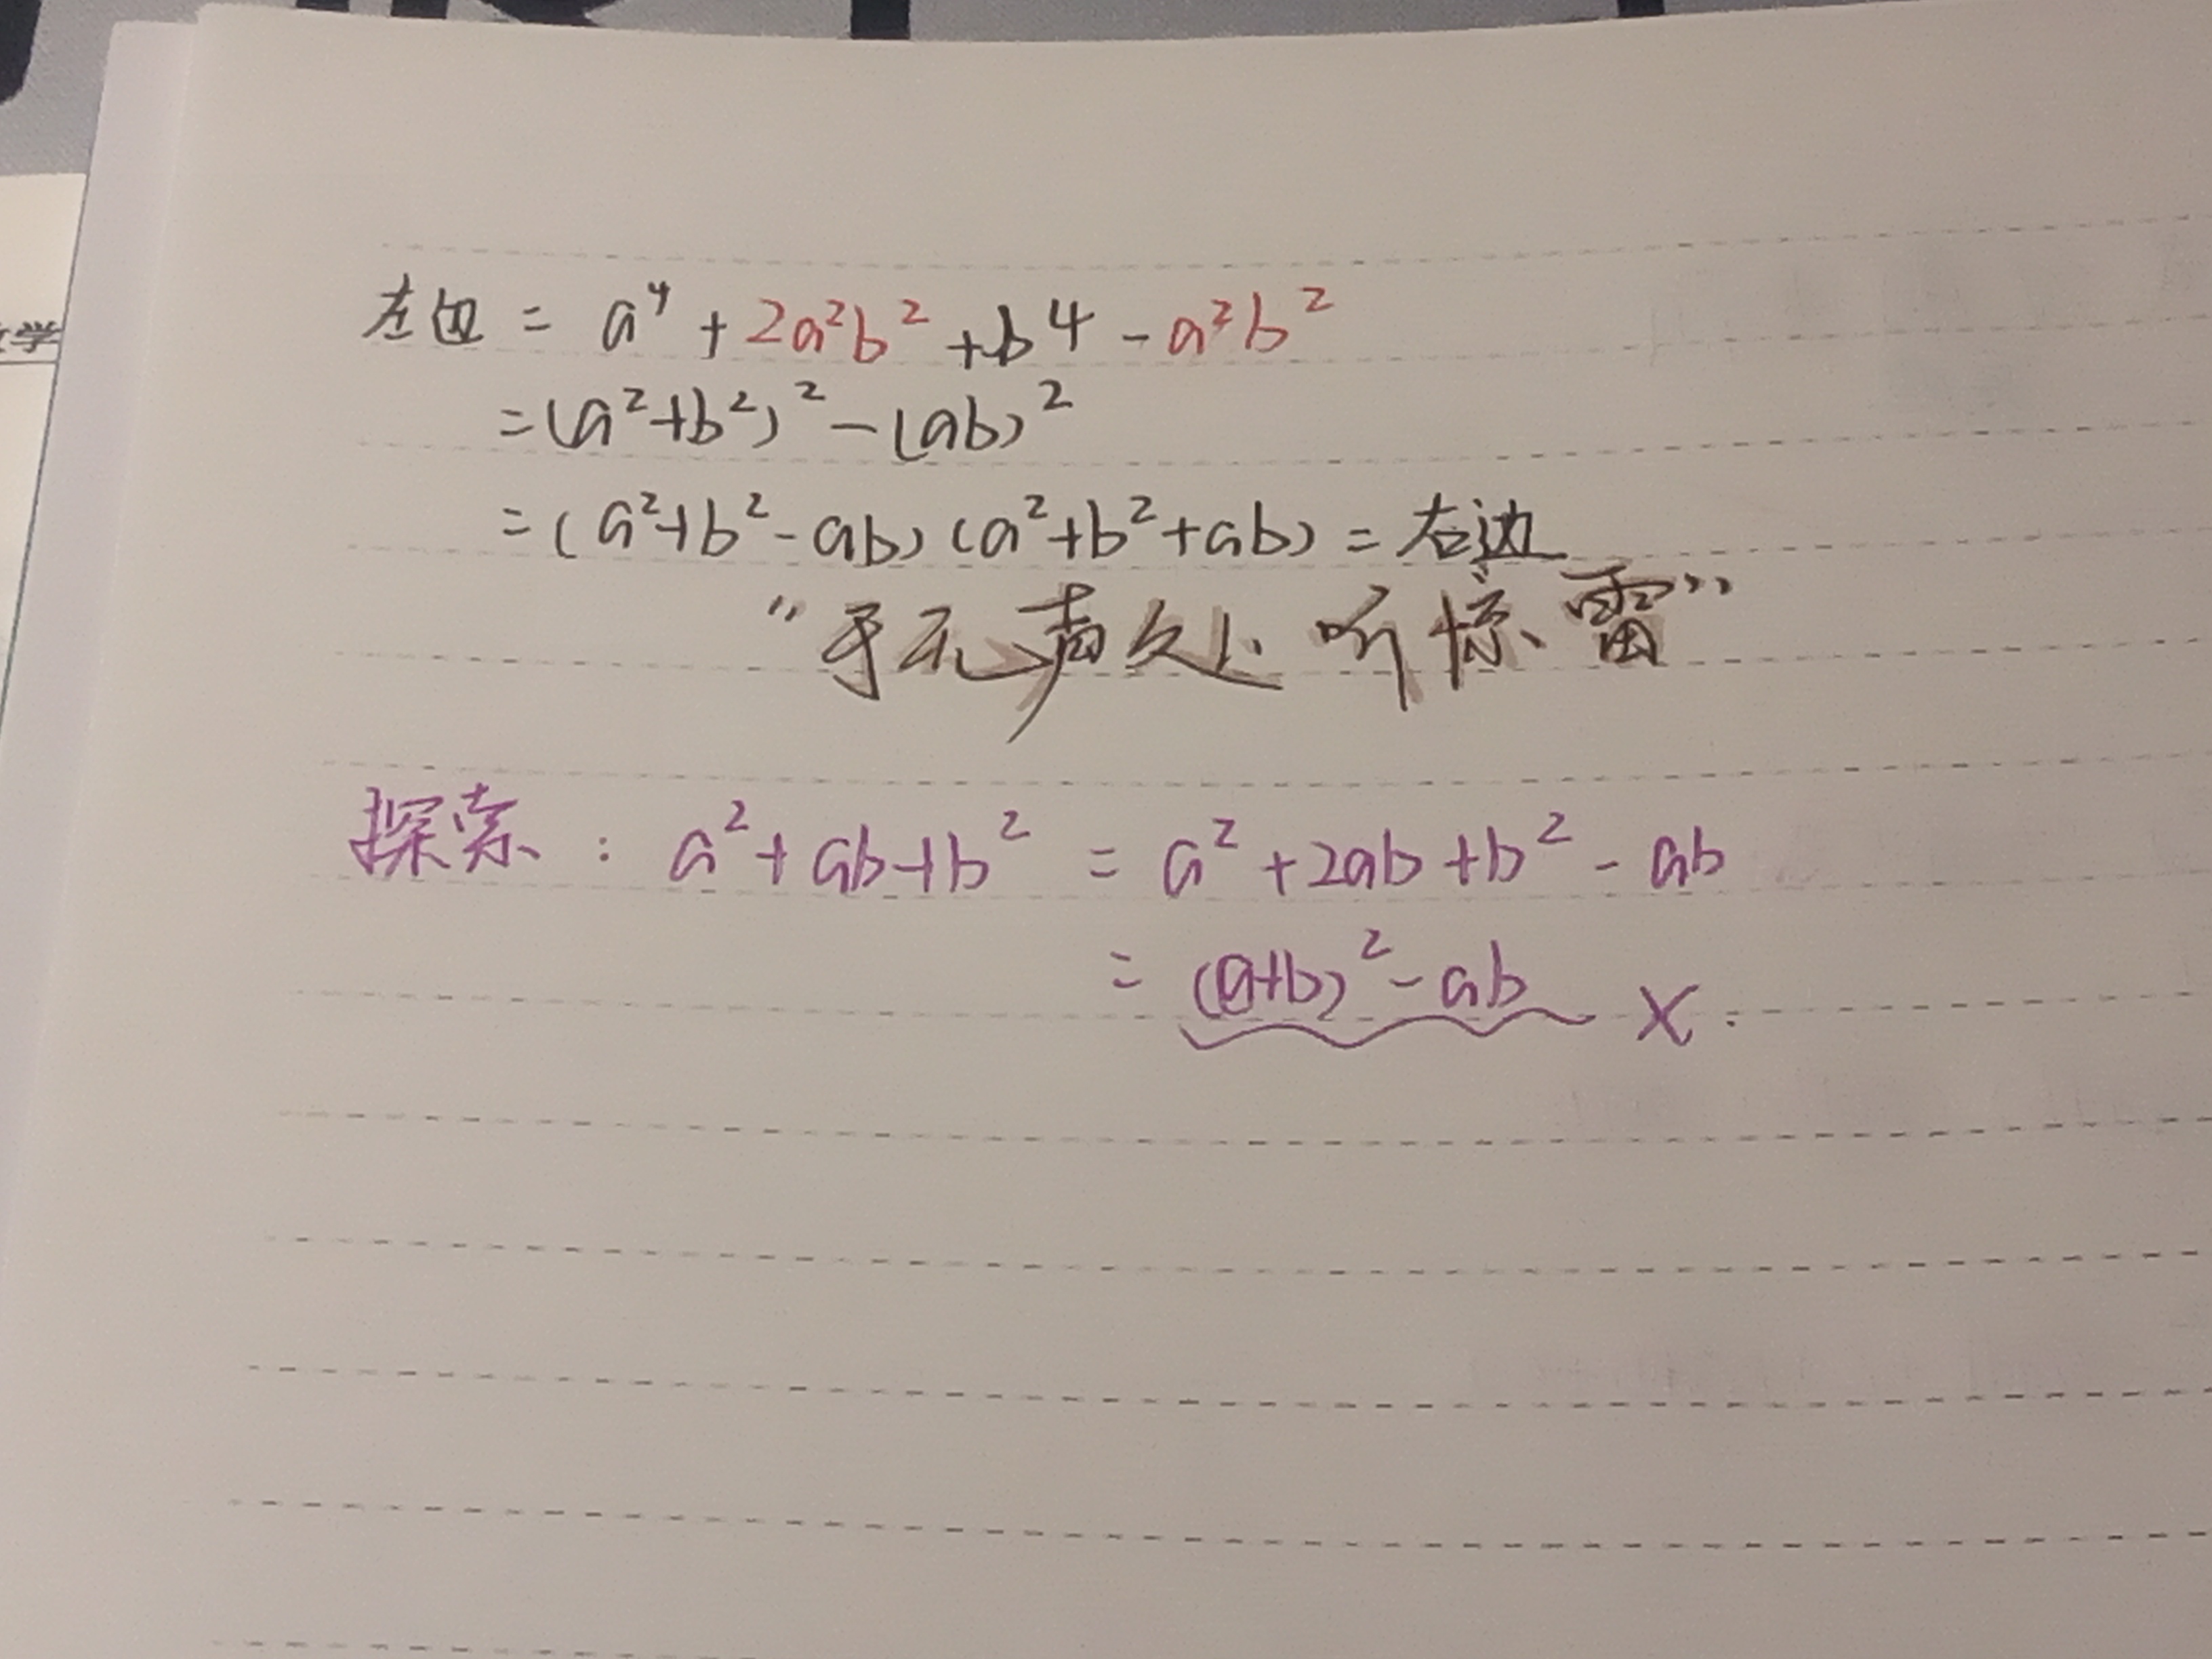 左边 = a⁴ + 2a²b² + b⁴ - a²b²
= (a²+b²)² - (ab)²
= (a²+b²-ab)(a²+b²+ab) = 右边
“于无声处听惊雷”
探索: a² + ab + b² = a² + 2ab + b² - ab
= (a+b)² - ab ×.
学